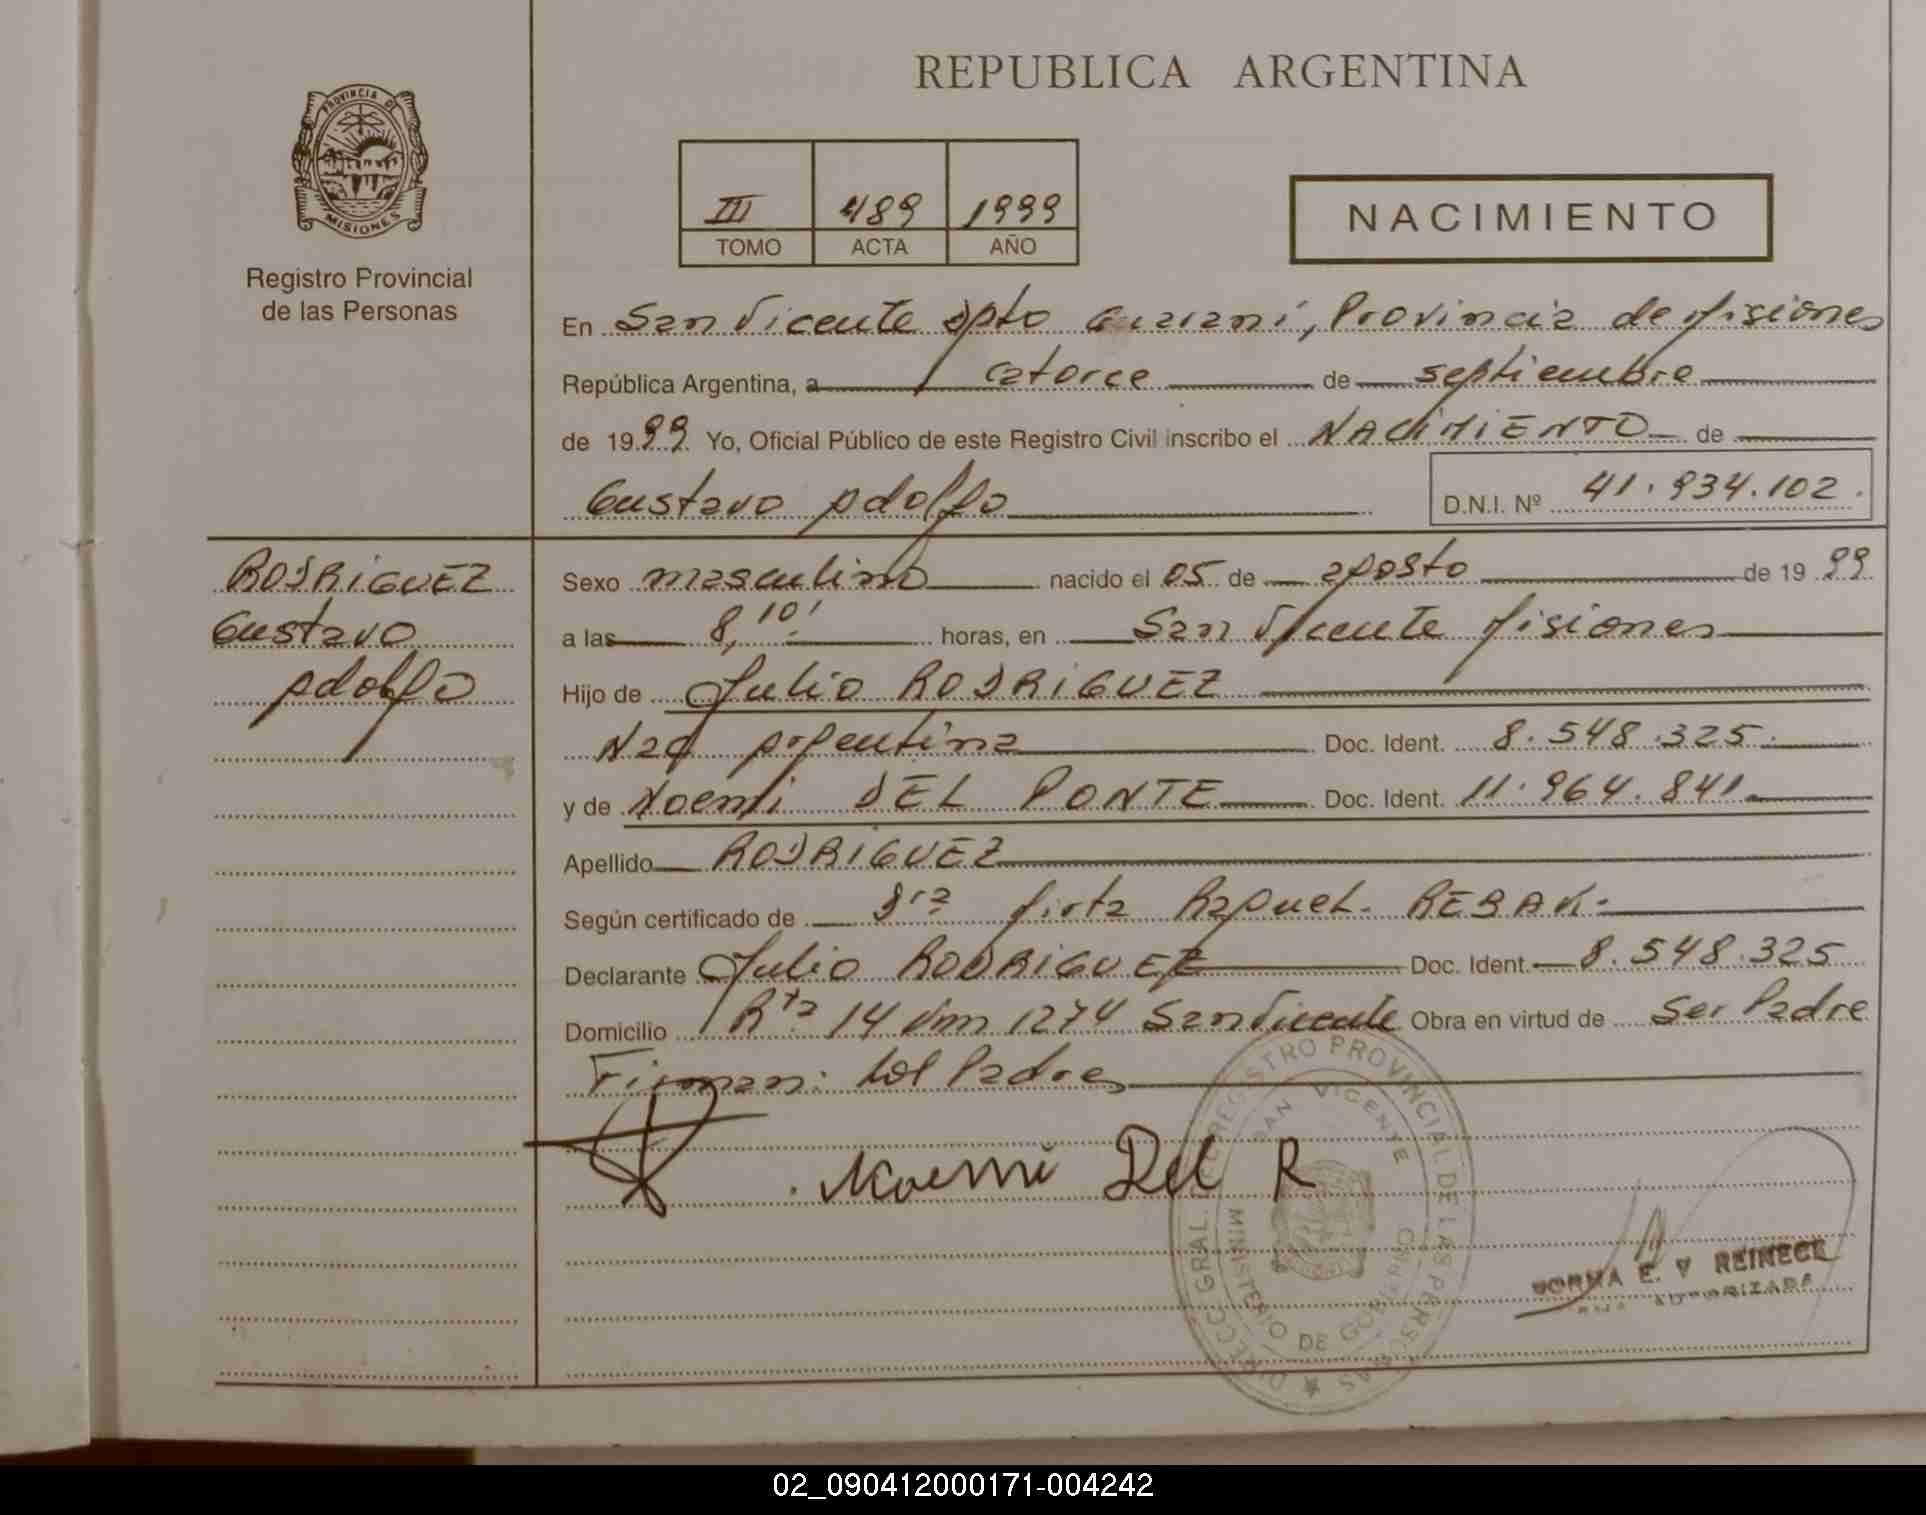 REPUBLICA ARGENTINA
PROVINCIA DE
MISIONES
Registro Provincial
de las Personas
III 489 1999
TOMO ACTA AÑO
NACIMIENTO
En San Vicente Dpto Guarani, Provincia de Misiones
República Argentina, a catorce de septiembre
de 1999 Yo, Oficial Público de este Registro Civil inscribo el NACIMIENTO de
Gustavo Adolfo D.N.I. Nº 41.934.102.
RODRIGUEZ
Gustavo
Adolfo
Sexo masculino nacido el 05 de agosto de 1999
a las 8,10' horas, en San Vicente Misiones
Hijo de Julio RODRIGUEZ
Nac Argentina Doc. Ident. 8.548.325.
y de Noemi DEL PONTE Doc. Ident. 11.964.841
Apellido RODRIGUEZ
Según certificado de Dra Mirta Raquel REBAK.
Declarante Julio RODRIGUEZ Doc. Ident. 8.548.325
Domicilio Rta 14 Km 1274 San Vicente Obra en virtud de Ser Padre
Firman: Los Padres
Noemi Del R
DIRECC. GRAL. DEL REGISTRO PROVINCIAL DE LAS PERSONAS
SAN VICENTE
MINISTERIO DE GOBIERNO
NORMA E. V REINECK
AUTORIZADA
02_090412000171-004242